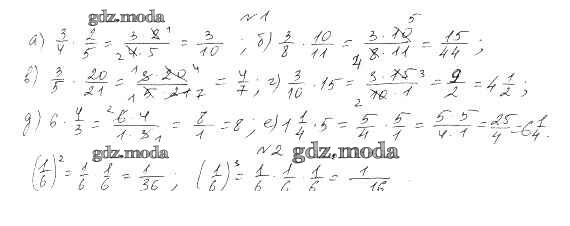 gdz.moda
№1
а) 3/4 · 2/5 = 3·2/4·5 = 3/10 ; б) 3/8 · 10/11 = 3·10/8·11 = 15/44 ;
в) 3/5 · 20/21 = 3·20/5·21 = 4/7 ; г) 3/10 · 15 = 3·15/10·1 = 9/2 = 4 1/2 ;
д) 6 · 4/3 = 6·4/1·3 = 8/1 = 8 ; е) 1 1/4 · 5 = 5/4 · 5/1 = 5·5/4·1 = 25/4 = 6 1/4 .
gdz.moda №2 gdz.moda
(1/6)² = 1/6 · 1/6 = 1/36 ; (1/6)³ = 1/6 · 1/6 · 1/6 = 1/